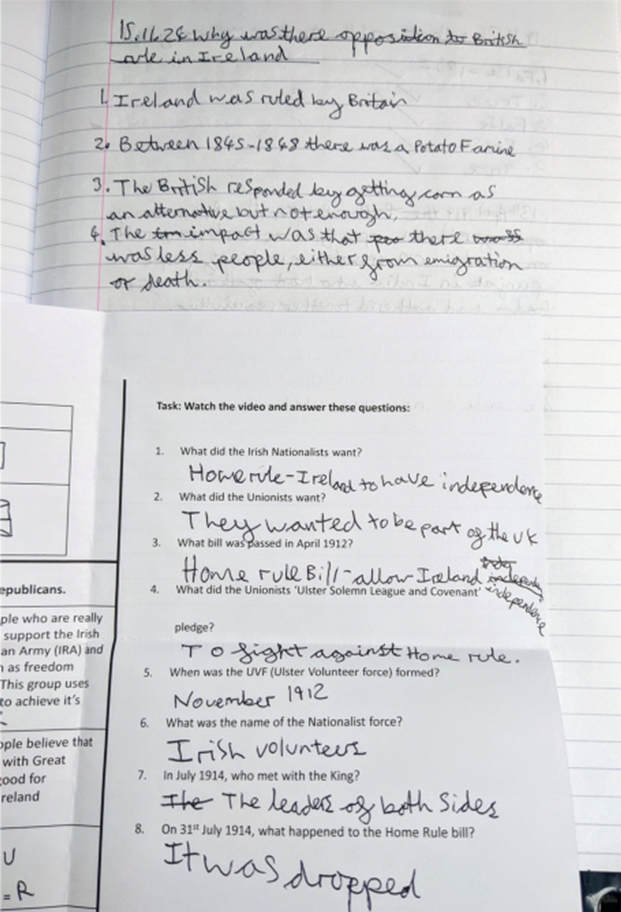 15.11.24 Why was there opposition to British
rule in Ireland
1. Ireland was ruled by Britain
2. Between 1845-1848 there was a Potato Famine
3. The British responded by getting corn as
an alternative but not enough.
4. The impact was that there
was less people, either from emigration
or death.
Task: Watch the video and answer these questions:
1. What did the Irish Nationalists want?
Home rule - Ireland to have independence
2. What did the Unionists want?
They wanted to be part of the UK
3. What bill was passed in April 1912?
Home rule Bill - allow Ireland
independence
4. What did the Unionists 'Ulster Solemn League and Covenant'
pledge?
To fight against Home rule.
5. When was the UVF (Ulster Volunteer force) formed?
November 1912
6. What was the name of the Nationalist force?
Irish volunteers
7. In July 1914, who met with the King?
The leaders of both Sides
8. On 31st July 1914, what happened to the Home Rule bill?
It was dropped
epublicans.
ple who are really
support the Irish
an Army (IRA) and
n as freedom
This group uses
to achieve it's
ople believe that
with Great
ood for
reland
U
= R